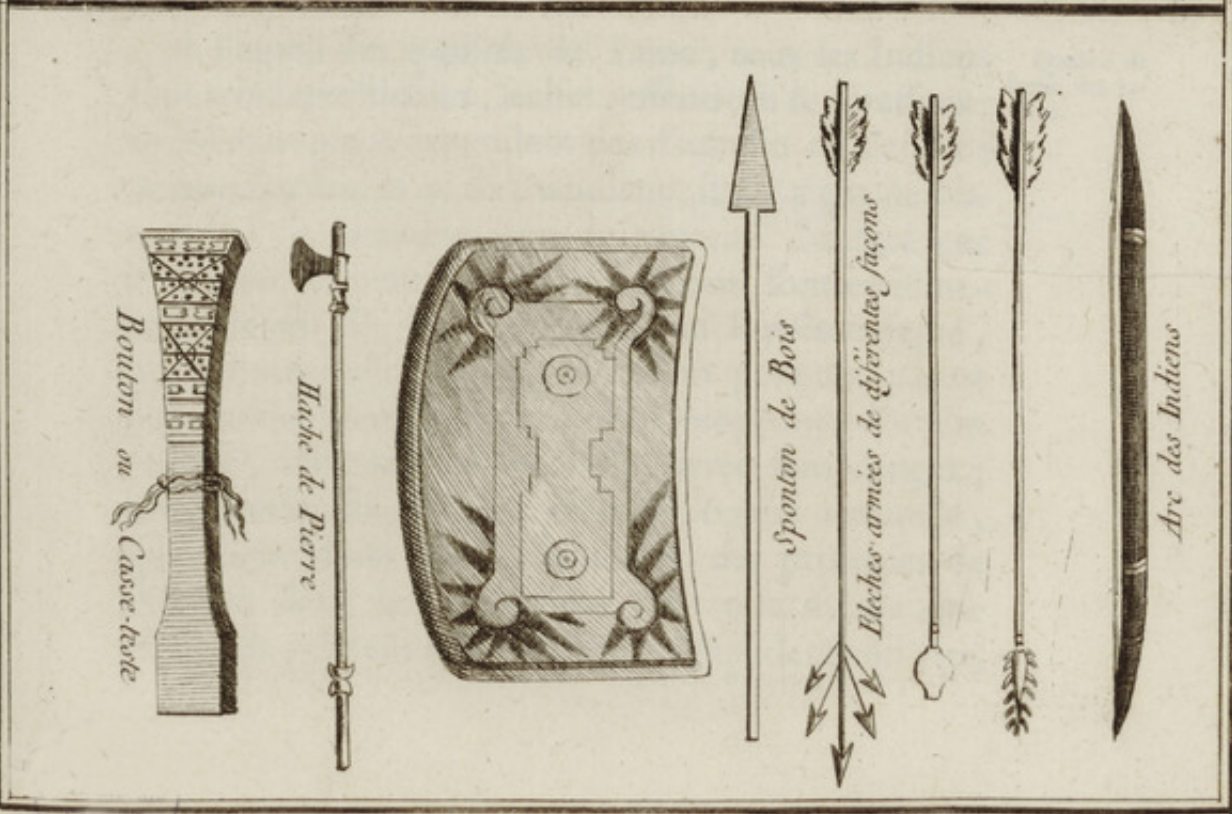 Bouton ou Casse-teste
Hache de Pierre
Sponton de Bois
Fleches armées de diferentes façons
Arc des Indiens